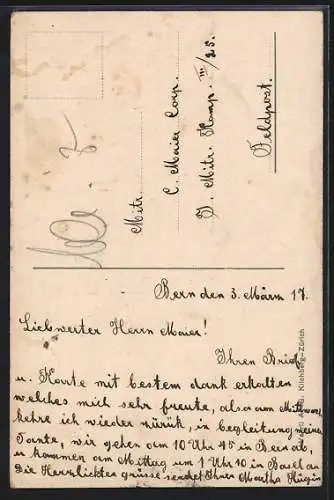 Mitr.
C. Maier Corp.
I. Mitr. Komp. III/25.
Feldpost.
Bern den 3. Märm 17.
Liebwerter Herrn Maier!
Ihren Brief
u. Karte mit bestem dank erhalten
welches mich sehr freute, also am Mittwoch
kehre ich wieder zurück, in begleitung meiner
Tante, wir gehen am 10 Uhr 45 in Bern ab,
u kommen am Mittag um 1 Uhr 10 in Basel an
Die Herzlichsten grüsse sendet Ihnen Martha Hügin
Kilchberg-Zürich